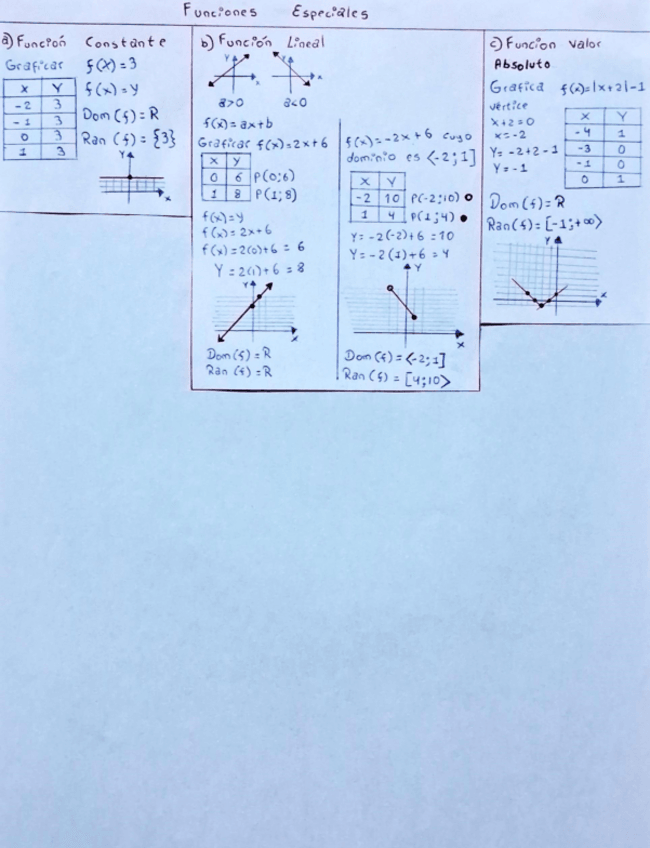 Funciones Especiales
a) Función Constante
Graficar f(x)=3
f(x)=y
X Y
-2 3
-1 3
0 3
1 3
Dom(f)=R
Ran(f)={3}
Y
X
b) Función Lineal
Y Y
X X
a>0 a<0
f(x)=ax+b
Graficar f(x)=2x+6
X Y
0 6 P(0;6)
1 8 P(1;8)
f(x)=y
f(x)=2x+6
f(x)=2(0)+6=6
Y=2(1)+6=8
Y
X
Dom(f)=R
Ran(f)=R
f(x)=-2x+6 cuyo
dominio es <-2;1]
X Y
-2 10 P(-2;10)
1 4 P(1;4)
Y=-2(-2)+6=10
Y=-2(1)+6=4
Y
X
Dom(f)=<-2;1]
Ran(f)=[4;10>
c) Funcion valor
Absoluto
Grafica f(x)=|x+2|-1
vértice
x+2=0
x=-2
Y=-2+2-1
Y=-1
X Y
-4 1
-3 0
-1 0
0 1
Dom(f)=R
Ran(f)=[-1;+∞>
Y
X